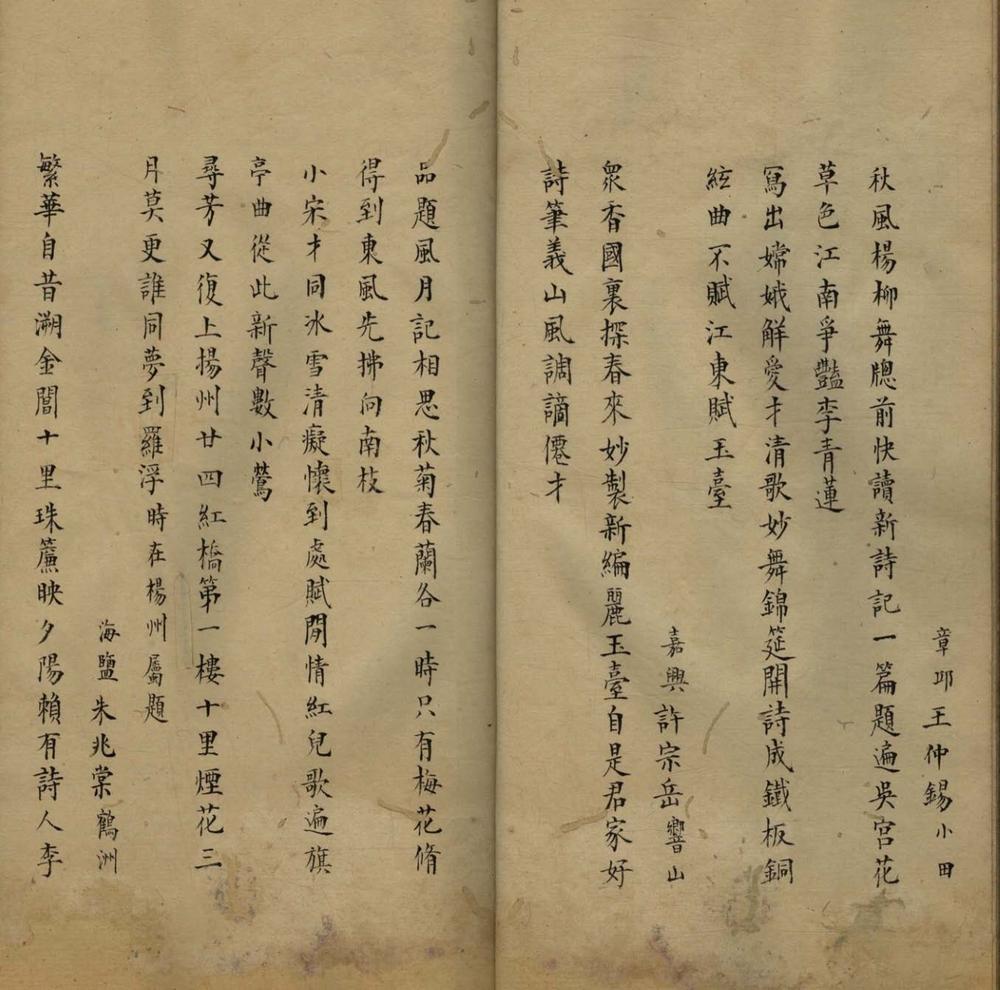 章邱王仲錫小田
秋風楊柳舞牕前快讀新詩記一篇題遍吳宮花
草色江南爭豔李青蓮
寫出嫦娥解愛才清歌妙舞錦筵開詩成鐵板銅
絃曲不賦江東賦玉臺
嘉興許宗岳響山
眾香國裏探春來妙製新編麗玉臺自是君家好
詩筆義山風調謫僊才
品題風月記相思秋菊春蘭各一時只有梅花脩
得到東風先拂向南枝
小宋才同冰雪清癡懷到處賦閒情紅兒歌遍旗
亭曲從此新聲數小鶯
尋芳又復上揚州廿四紅橋第一樓十里煙花三
月莫更誰同夢到羅浮時在楊州屬題
海鹽朱兆棠鶴洲
繁華自昔溯金閶十里珠簾映夕陽賴有詩人李